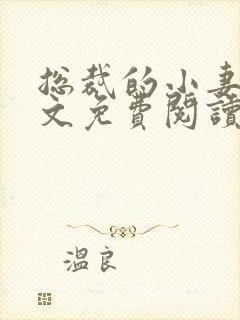 总裁的小妻
文免費閱讀
溫良